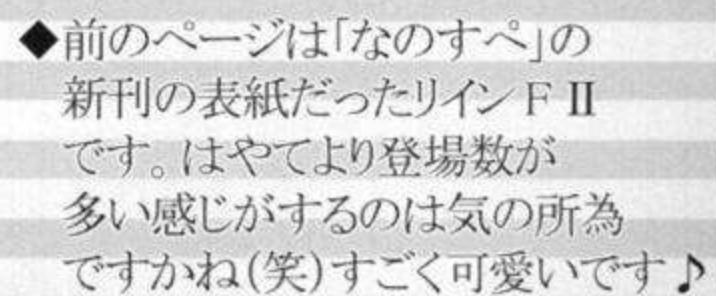 ◆前のページは「なのすぺ」の
新刊の表紙だったリインF II
です。はやてより登場数が
多い感じがするのは気の所為
ですかね(笑)すごく可愛いです♪